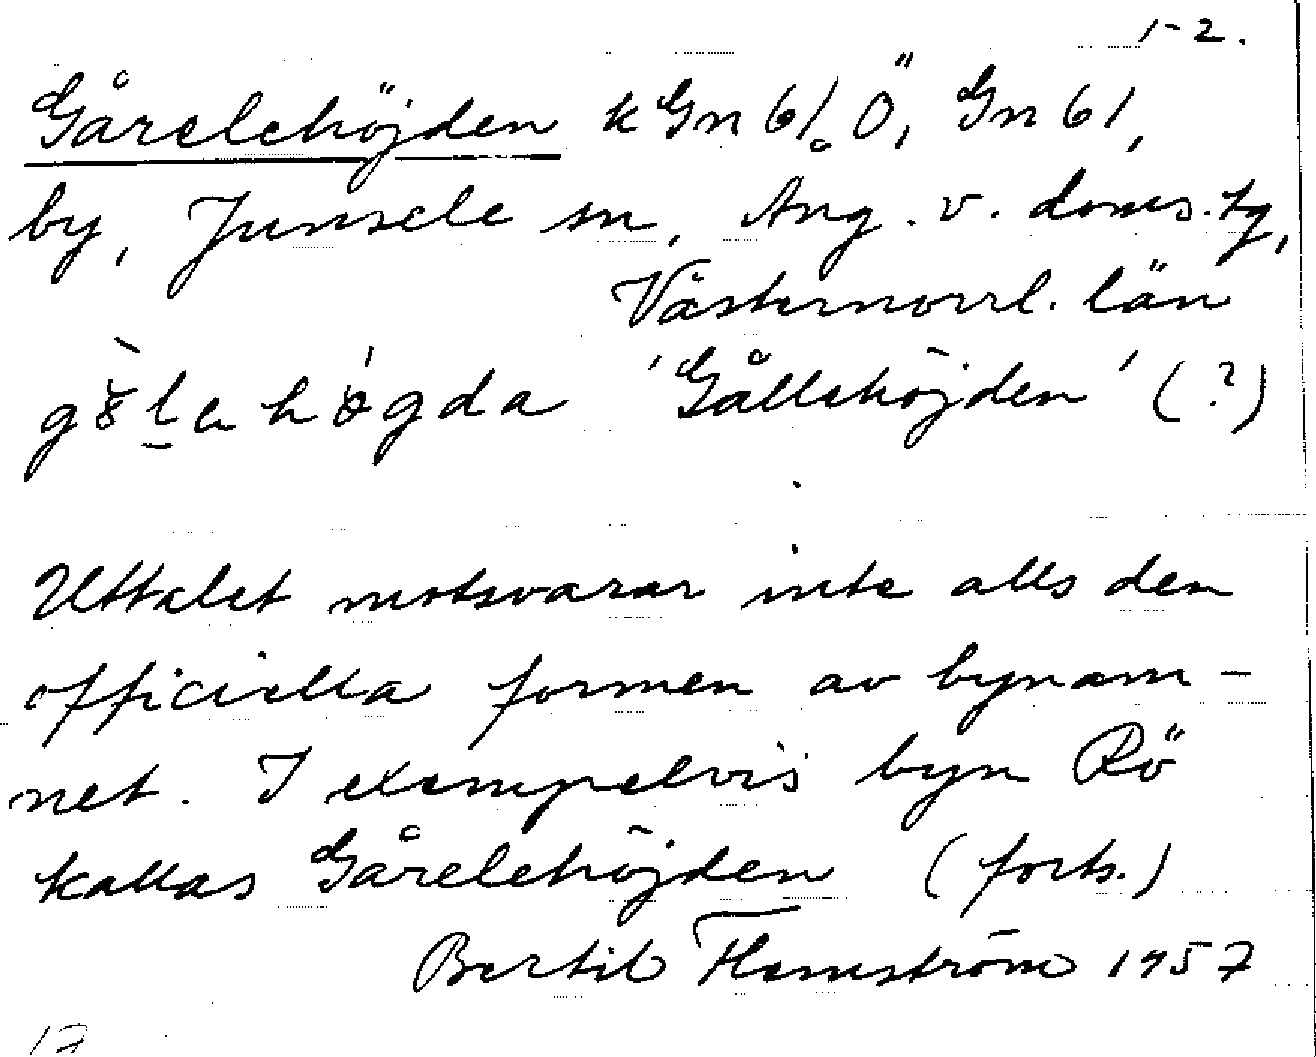 1-2.
Gårelehöjden k Gn 61 Ö, Gn 61,
by, Junsele sn, Ång. v. doms. tg,
Västernorrl. län
'Gållehöjden' (?)
Uttalet motsvarar inte alls den
officiella formen av bynam-
net. I exempelvis byn Rö
kallas Gårelehöjden (forts.)
Bertil Flemström 1957
17